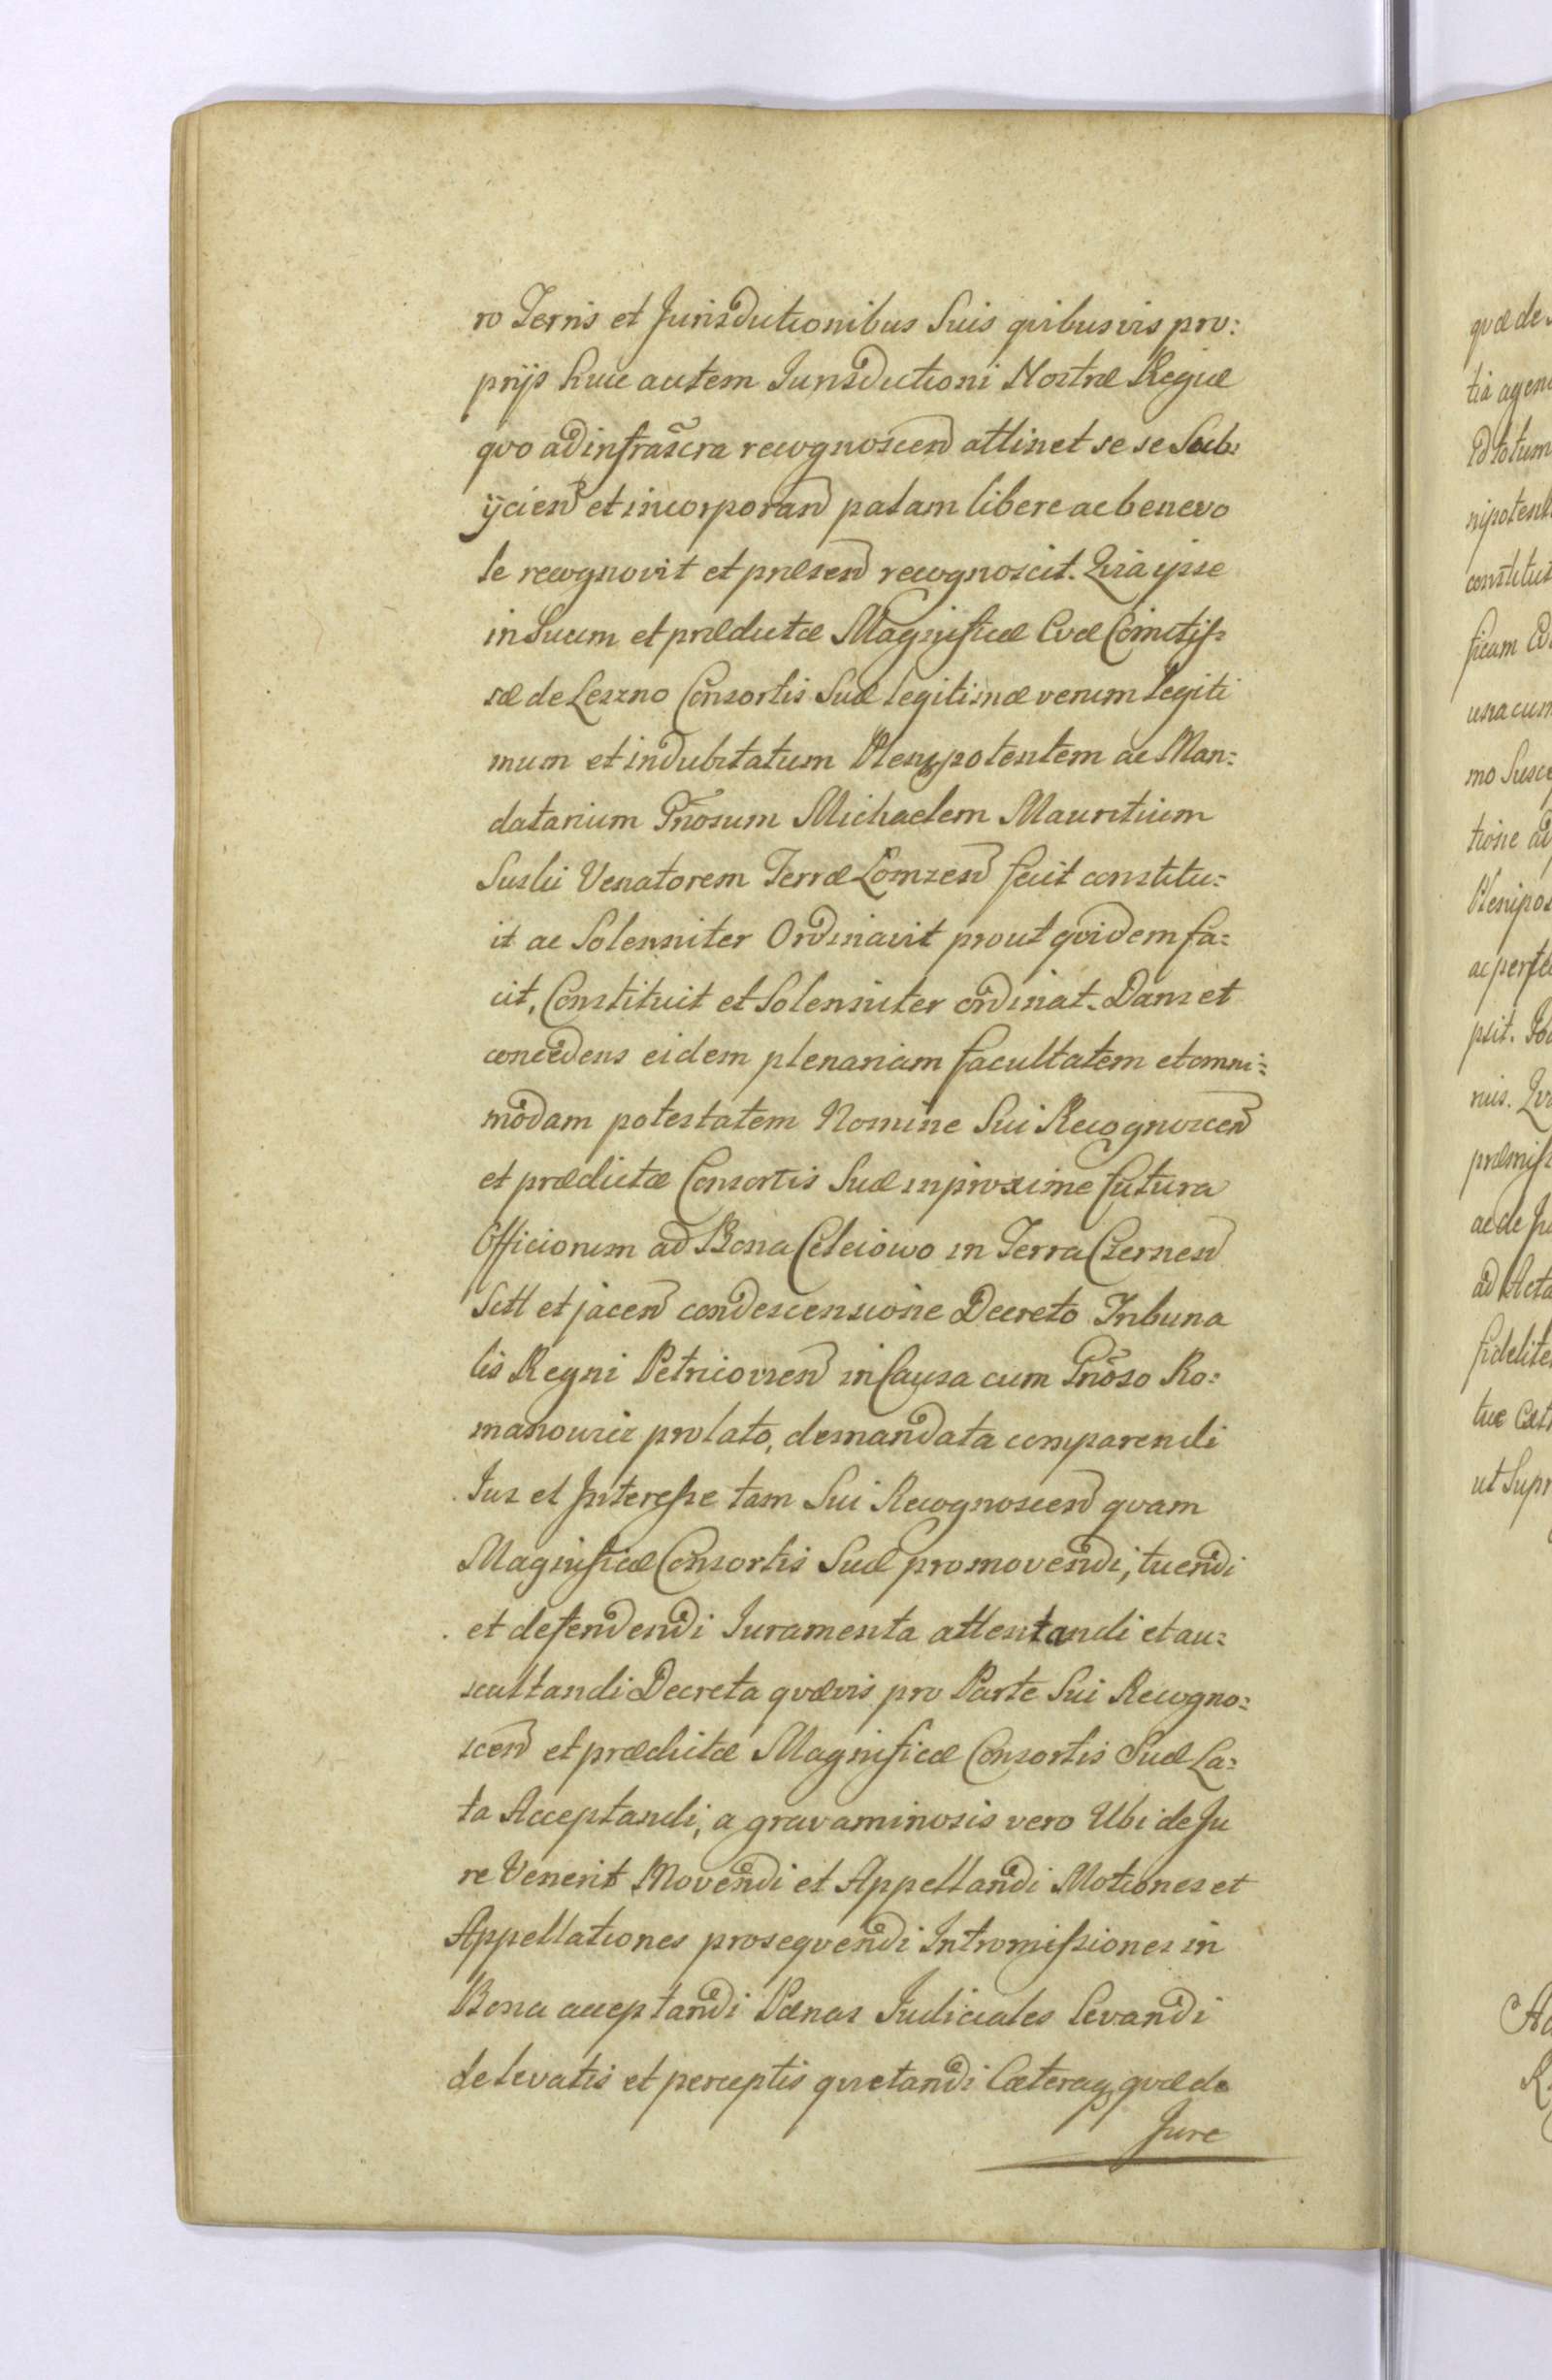 ro Terris et Jurisdictionibus Suis quibusvis pro:
prijs huic autem Jurisdictioni Nostræ Regiæ
qvo ad infrascra recognoscen attinet se se Sub:
ijcien et incorporan palam libere ac benevo
le recognovit et præsen recognoscit. Quia ipse
in Suum et prædictæ Magnificæ Evæ Comitiss
sæ de Leszno Consortis Suæ legitimæ verum legiti
mum et indubitatum Plenipotentem ac Man:
datarium Gnosum Michaelem Mauritium
Suski Venatorem Terræ Lomzen fecit constitu:
it ac Solenniter Ordinavit prout qvidem fa:
cit, Constituit et Solenniter ordinat. Dans et
concedens eidem plenariam facultatem et omni:
modam potestatem Nomine Sui Recognoscen
et prædictæ Consortis Suæ in proxime futura
Officiorum ad Bona Celeiowo in Terra Czernen
Sitt et jacen condescensione Decreto Tribuna
lis Regni Petricovien in Causa cum Gnoso Ro:
manowicz prolato, demandata comparendi
Jus et Interesse tam Sui Recognoscen qvam
Magnificæ Consortis Suæ promovendi, tuendi
et defendendi Juramenta attentandi et au:
scultandi Decreta qvævis pro Parte Sui Recogno:
scen et prædictæ Magnificæ Consortis Suæ La:
ta Acceptandi, a gravaminosis vero Ubi de Ju
re Venerit Movendi et Appellandi Motiones et
Appellationes proseqvendi Intromissiones in
Bona acceptandi Pænas Judiciales levandi
de levatis et perceptis qvietandi Cæteraq qvæ de
Jure